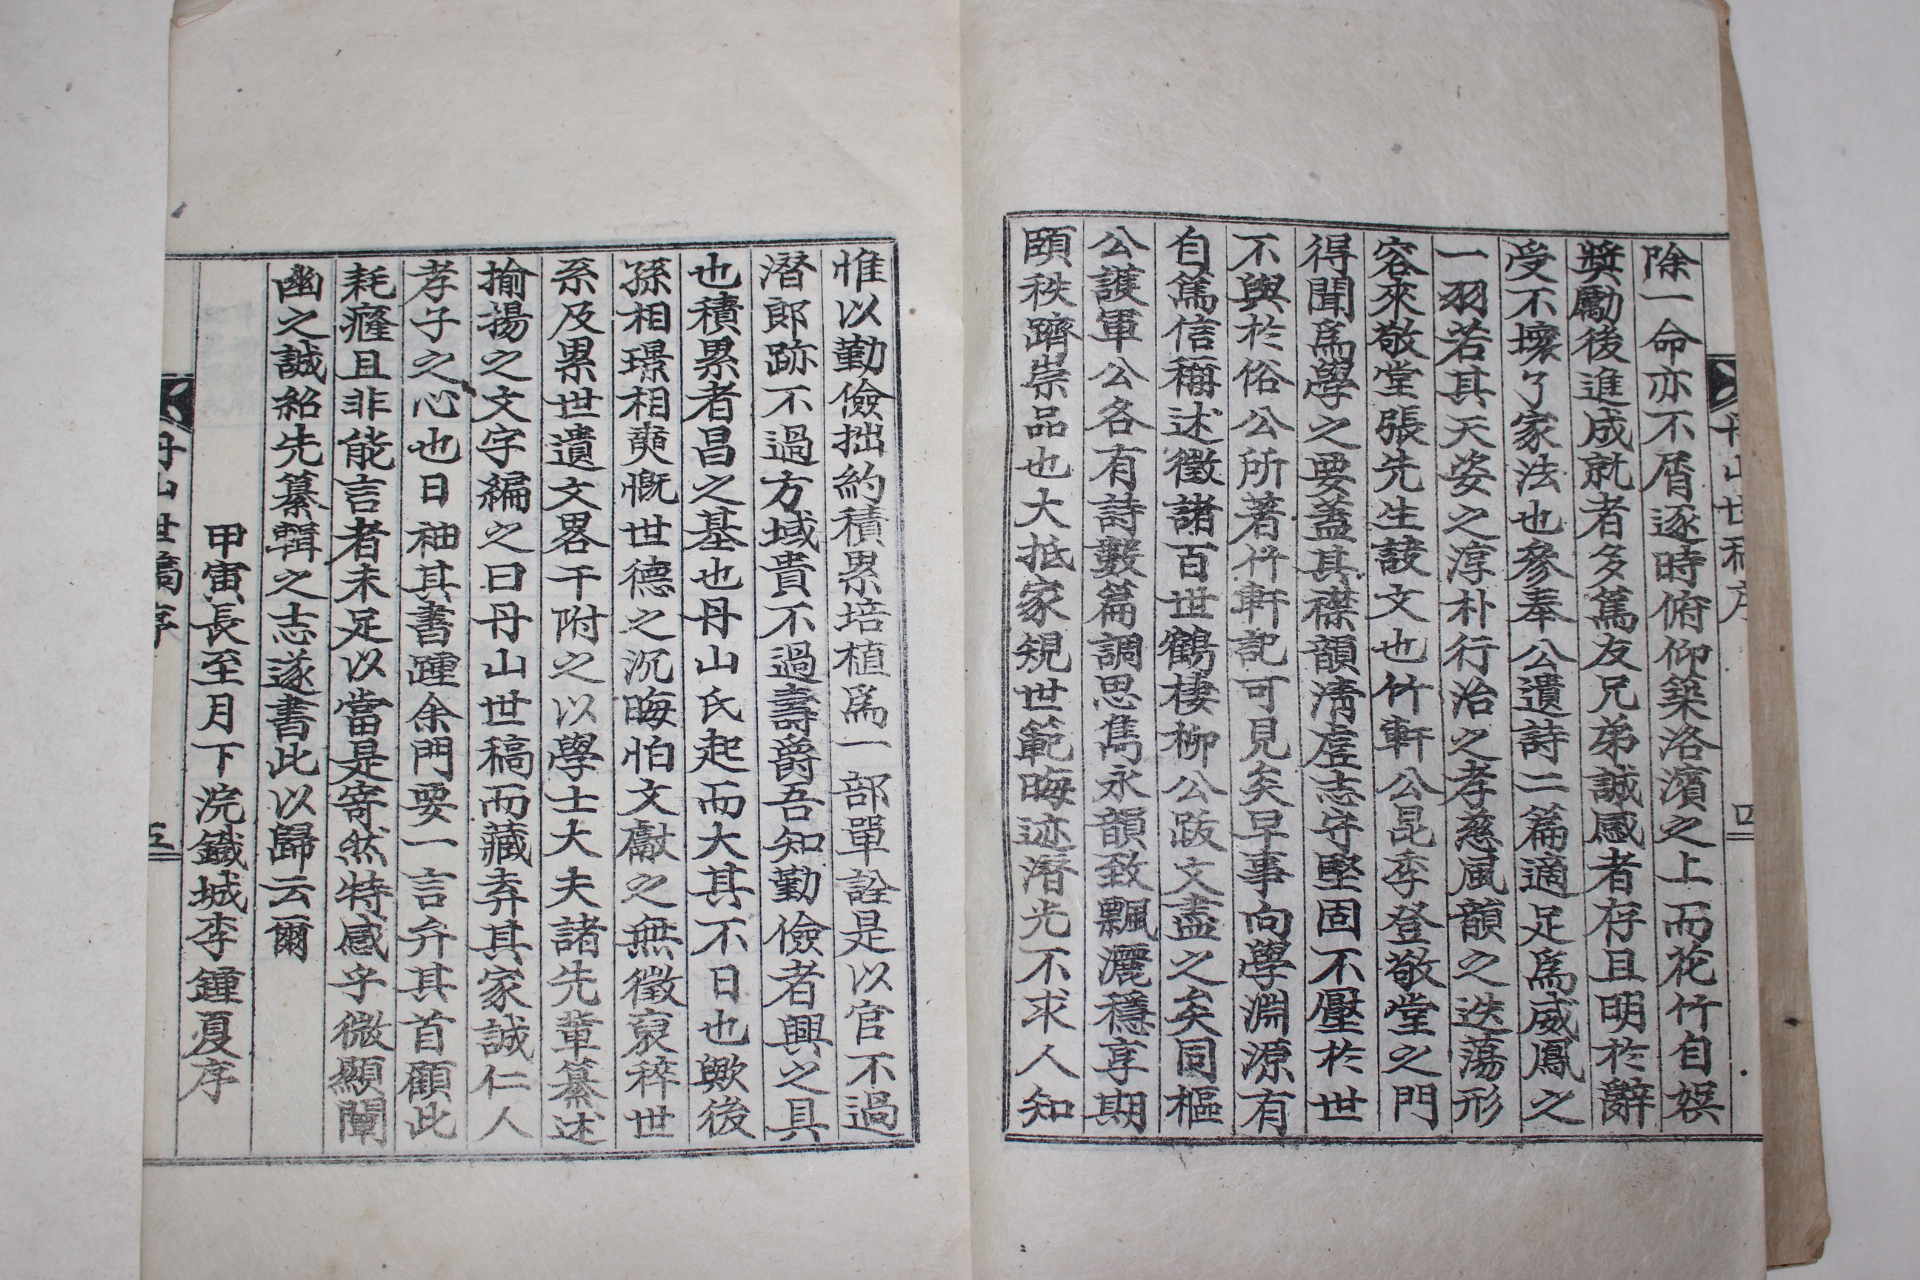 除一命亦不屑逐時俯仰築洛濱之上而花竹自娛
獎勵後進成就者多篤友兄弟誠感者存且明於辭
受不壞了家法也參奉公遺詩二篇適足爲威鳳之
一羽若其天姿之淳朴行治之孝慈風韻之迭蕩形
容來敬堂張先生誄文也竹軒公昆季登敬堂之門
得聞爲學之要盖其襟韻淸虗志守堅固不壓於世
不與於俗公所著竹軒記可見矣早事向學淵源有
自篤信稱述徵諸百世鶴棲柳公跋文盡之矣同樞
公護軍公各有詩數篇調思雋永韻致飄灑穩享期
頤秩躋崇品也大抵家規世範晦迹潛光不求人知
丹山世稿序
四
惟以勤儉拙約積累培植爲一部單詮是以官不過
潛郎跡不過方域貴不過壽爵吾知勤儉者興之具
也積累者昌之基也丹山氏起而大其不日也歟後
孫相璟相奭慨世德之沉晦怕文獻之無徵裒稡世
系及累世遺文畧干附之以學士大夫諸先輩纂述
揄揚之文字編之曰丹山世稿而藏弆其家誠仁人
孝子之心也日袖其書踵余門要一言弁其首顧此
耗癃且非能言者未足以當是寄然特感乎微顯闡
幽之誠紹先纂輯之志遂書此以歸云爾
甲寅長至月下浣鐵城李鍾夏序
丹山世稿序
五